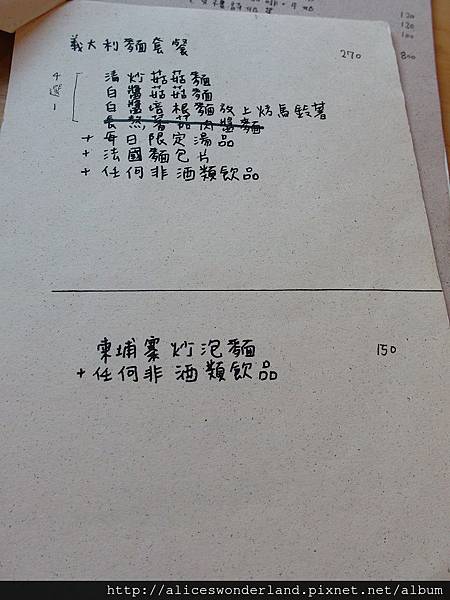 120
120
100
800
義大利麵套餐 270
4選1
清炒菇菇麵
白醬菇菇麵
白醬培根麵放上烤馬鈴薯
長熬蕃茄肉醬麵
+每日限定湯品
+法國麵包片
+任何非酒類飲品
柬埔寨炒泡麵 150
+任何非酒類飲品
http://aliceswonderland.pixnet.net/album